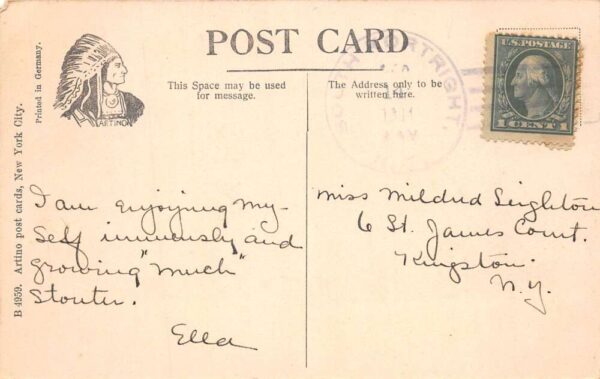 POST CARD
Printed in Germany.
B 4959. Artino post cards, New York City.
ARTINO
This Space may be used
for message.
The Address only to be
written here.
SOUTH KORTRIGHT,
U.S. POSTAGE
1 CENT 1
I am enjoying my-
self immensely and
growing "much"
Stouter.
Ella
Miss Mildred Leighton
6 St. James Court.
Kingston.
N.Y.